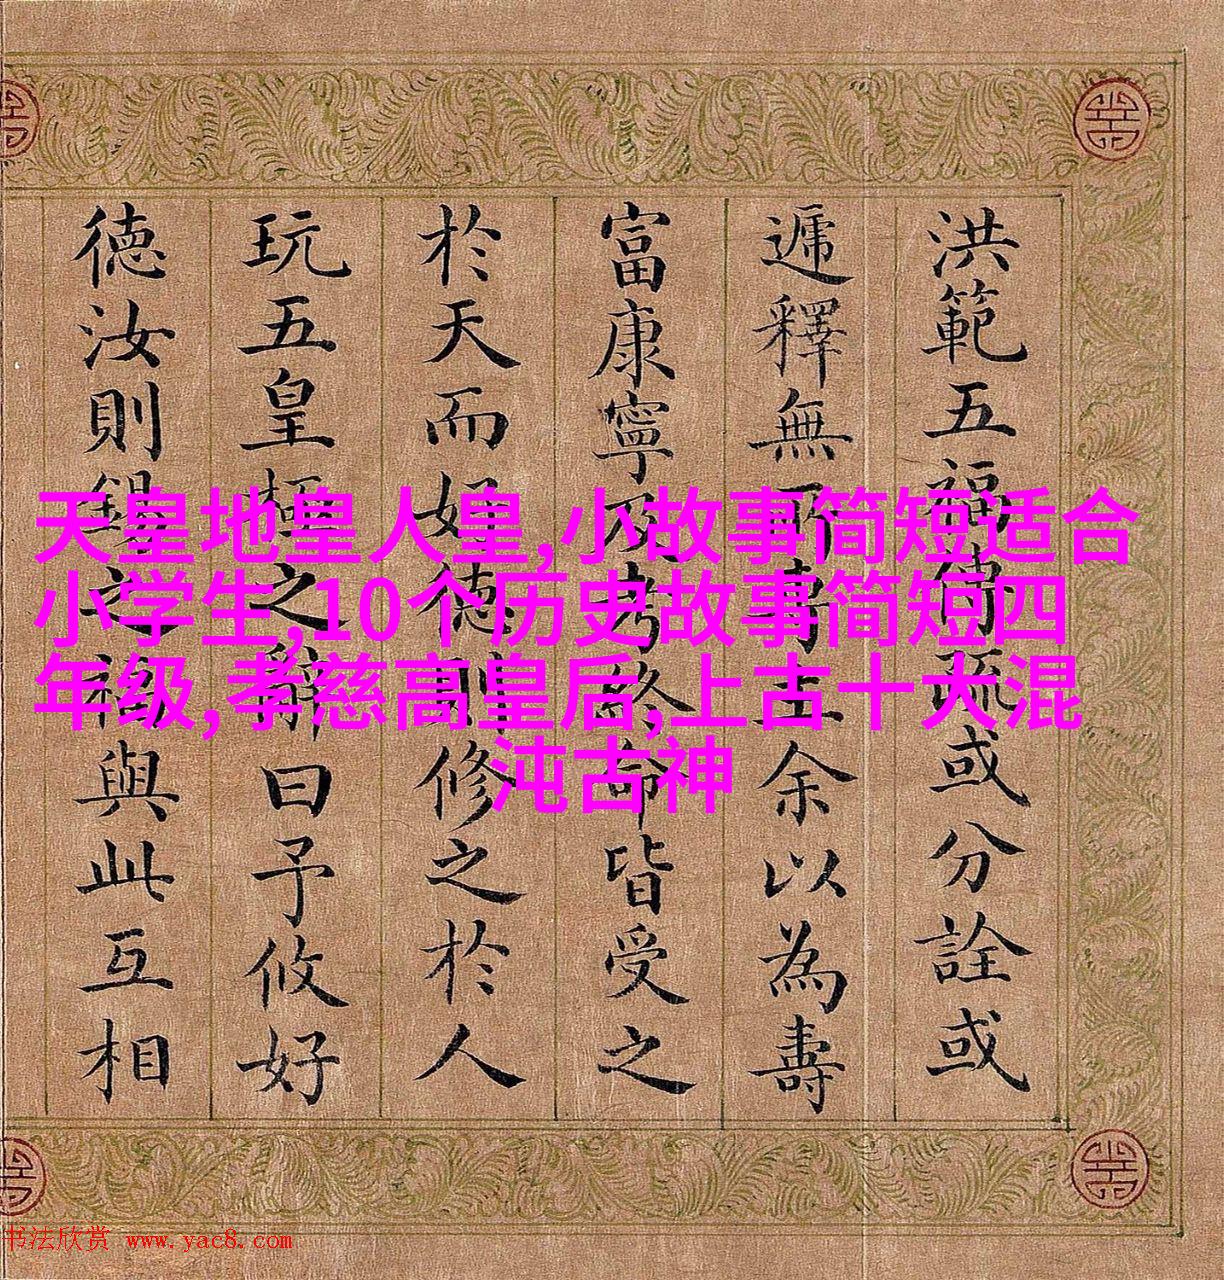 洪範五福傳疏或分詮或
遞釋無所專主余以為壽
富康寧乃考終命皆受之
於天而好德則修之於人
玩五皇極之辭曰予攸好
德汝則錫之福與此互相
天皇地皇人皇,小故事简短适合
小学生,10个历史故事简短四
年级,孝慈高皇后,上古十大混
沌古神
书法欣赏 www.yac8.com